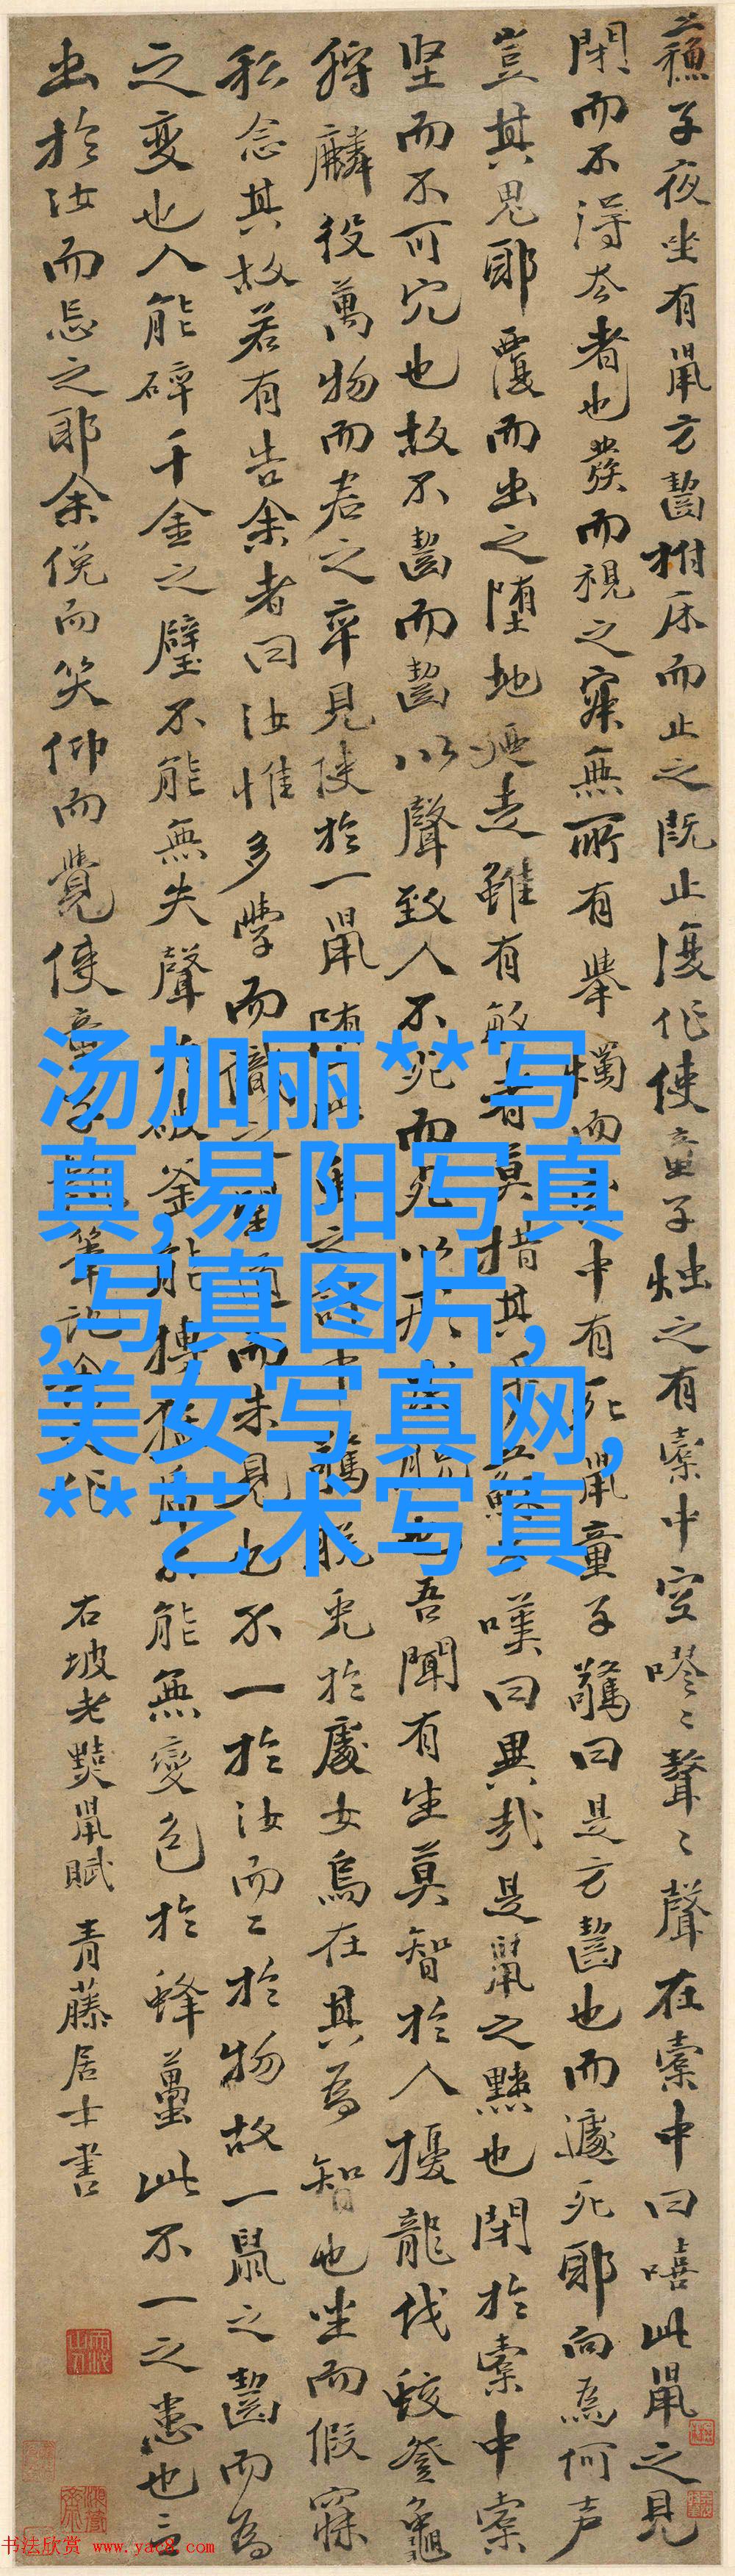 蘓子夜坐有鼠方齧拊床而止之既止復作使童子燭之有橐中空嘐〻聱〻聲在橐中曰嘻此鼠之見
閉而不得去者也發而視之寂無所有舉燭而索中有死鼠童子驚曰是方齧也而遽死耶向為何声
豈其鬼耶覆而出之墮地廼走雖有敏者莫措其手蘇子嘆曰異哉是鼠之黠也閉於橐中橐
坚而不可穴也故不齧而齧以聲致人不死而死以形求脫也吾聞有生莫智於人擾龍伐蛟登龜
狩麟役萬物而君之卒見使於一鼠墮此之計中驚脫兔於處女烏在其為智也坐而假寐
私念其故若有告余者曰汝惟多學而識之望道而未見也不一於汝而二於物故一鼠之齧而為
之變也人能碎千金之璧不能無失聲於破釜能搏猛虎不能無變色於蜂蠆此不一之患也言
出於汝而忘之耶余俛而笑仰而覺使童子執筆記余之作
右坡老黠鼠賦 青藤居士書
汤加丽**写
真,易阳写真
,写真图片,
美女写真网,
**艺术写真
书法欣赏 www.yac8.com